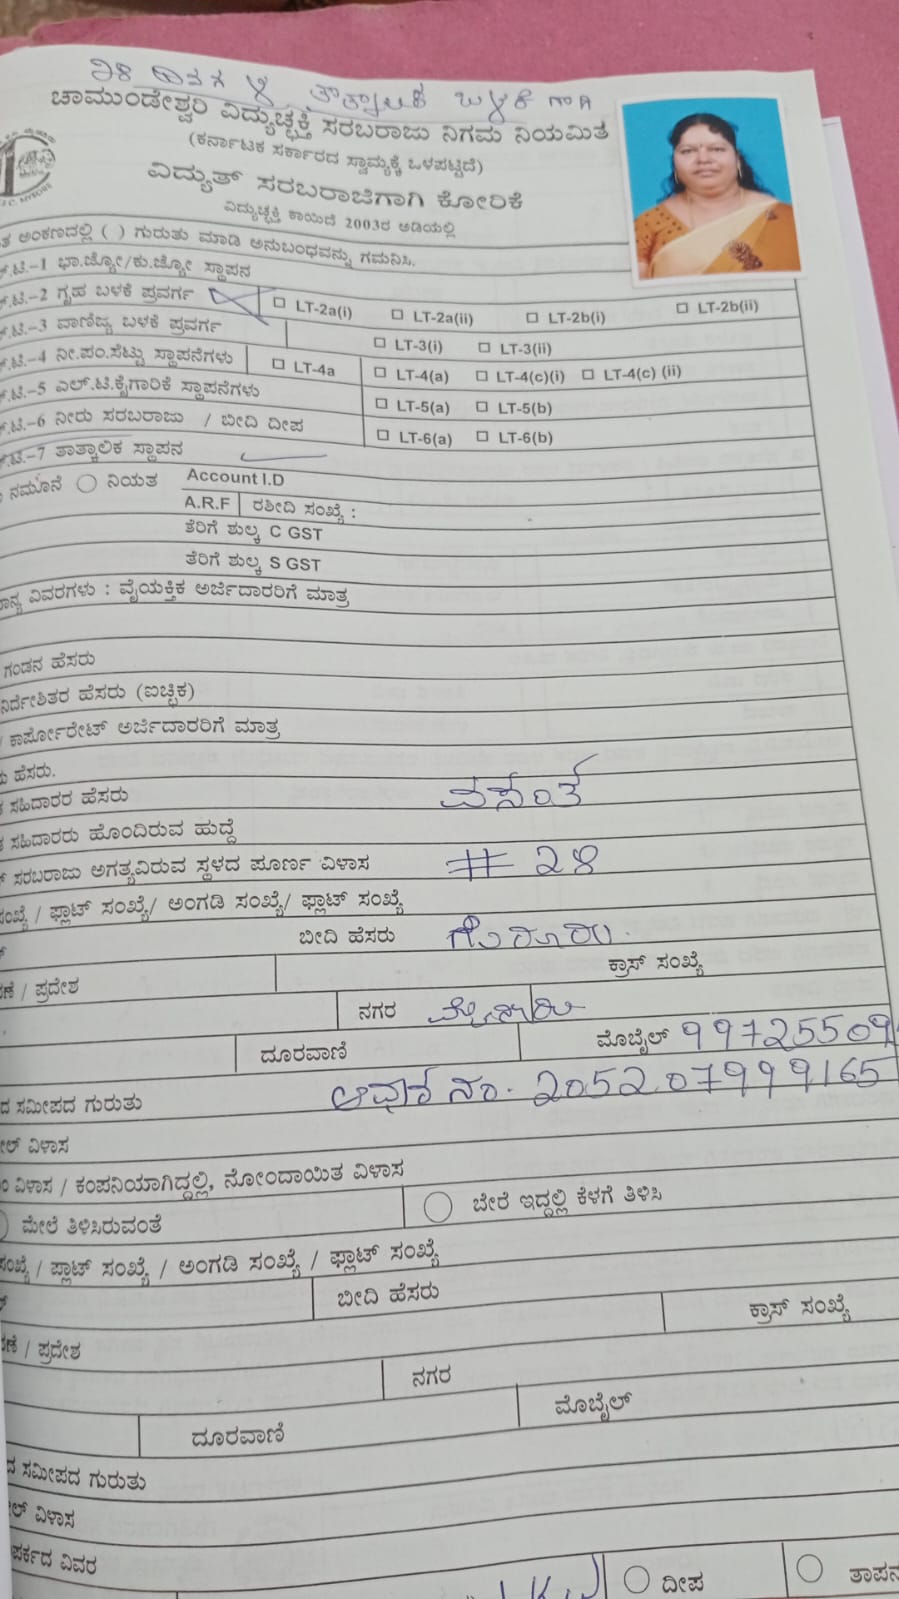 ತಾತ್ಕಾಲಿಕ ಬಳಕೆ ಗಾಗಿ
ಚಾಮುಂಡೇಶ್ವರಿ ವಿದ್ಯುಚ್ಛಕ್ತಿ ಸರಬರಾಜು ನಿಗಮ ನಿಯಮಿತ
(ಕರ್ನಾಟಕ ಸರ್ಕಾರದ ಸ್ವಾಮ್ಯಕ್ಕೆ ಒಳಪಟ್ಟಿದೆ)
ವಿದ್ಯುತ್ ಸರಬರಾಜಿಗಾಗಿ ಕೋರಿಕೆ
ವಿದ್ಯುಚ್ಛಕ್ತಿ ಕಾಯಿದೆ 2003ರ ಅಡಿಯಲ್ಲಿ
ಅಂಕಣದಲ್ಲಿ ( ) ಗುರುತು ಮಾಡಿ ಅನುಬಂಧವನ್ನು ಗಮನಿಸಿ.
.ಟಿ.-1 ಭಾ.ಜ್ಯೋ/ಕು.ಜ್ಯೋ ಸ್ಥಾಪನ
.ಟಿ.-2 ಗೃಹ ಬಳಕೆ ಪ್ರವರ್ಗ LT-2a(i) LT-2a(ii) LT-2b(i) LT-2b(ii)
.ಟಿ.-3 ವಾಣಿಜ್ಯ ಬಳಕೆ ಪ್ರವರ್ಗ LT-3(i) LT-3(ii)
.ಟಿ.-4 ನೀ.ಪಂ.ಸೆಟ್ಟು ಸ್ಥಾಪನೆಗಳು LT-4a LT-4(a) LT-4(c)(i) LT-4(c) (ii)
.ಟಿ.-5 ಎಲ್.ಟಿ.ಕೈಗಾರಿಕೆ ಸ್ಥಾಪನೆಗಳು LT-5(a) LT-5(b)
.ಟಿ.-6 ನೀರು ಸರಬರಾಜು / ಬೀದಿ ದೀಪ LT-6(a) LT-6(b)
.ಟಿ.-7 ತಾತ್ಕಾಲಿಕ ಸ್ಥಾಪನ
ನಮೂನೆ ನಿಯತ Account I.D
A.R.F ರಶೀದಿ ಸಂಖ್ಯೆ :
ತೆರಿಗೆ ಶುಲ್ಕ C GST
ತೆರಿಗೆ ಶುಲ್ಕ S GST
ವಿವರಗಳು : ವೈಯಕ್ತಿಕ ಅರ್ಜಿದಾರರಿಗೆ ಮಾತ್ರ
ಗಂಡನ ಹೆಸರು
ನಿರ್ದೇಶಿತರ ಹೆಸರು (ಐಚ್ಛಿಕ)
ಕಾರ್ಪೋರೇಟ್ ಅರ್ಜಿದಾರರಿಗೆ ಮಾತ್ರ
ಹೆಸರು.
ಸಹಿದಾರರ ಹೆಸರು ವಸಂತ
ಸಹಿದಾರರು ಹೊಂದಿರುವ ಹುದ್ದೆ
ಸರಬರಾಜು ಅಗತ್ಯವಿರುವ ಸ್ಥಳದ ಪೂರ್ಣ ವಿಳಾಸ # 28
ಸಂಖ್ಯೆ / ಫ್ಲಾಟ್ ಸಂಖ್ಯೆ/ ಅಂಗಡಿ ಸಂಖ್ಯೆ/ ಫ್ಲಾಟ್ ಸಂಖ್ಯೆ
ಬೀದಿ ಹೆಸರು ಗೊರೂರು.
/ ಪ್ರದೇಶ ಕ್ರಾಸ್ ಸಂಖ್ಯೆ
ನಗರ ಮೈಸೂರು
ದೂರವಾಣಿ ಮೊಬೈಲ್ 99725509
ಸಮೀಪದ ಗುರುತು ಆಧಾರ್ ನಂ. 205207999165
ವಿಳಾಸ
ವಿಳಾಸ / ಕಂಪನಿಯಾಗಿದ್ದಲ್ಲಿ, ನೋಂದಾಯಿತ ವಿಳಾಸ
ಮೇಲೆ ತಿಳಿಸಿರುವಂತೆ ಬೇರೆ ಇದ್ದಲ್ಲಿ ಕೆಳಗೆ ತಿಳಿಸಿ
ಸಂಖ್ಯೆ / ಪ್ಲಾಟ್ ಸಂಖ್ಯೆ / ಅಂಗಡಿ ಸಂಖ್ಯೆ / ಫ್ಲಾಟ್ ಸಂಖ್ಯೆ
ಬೀದಿ ಹೆಸರು
/ ಪ್ರದೇಶ ಕ್ರಾಸ್ ಸಂಖ್ಯೆ
ನಗರ
ದೂರವಾಣಿ ಮೊಬೈಲ್
ಸಮೀಪದ ಗುರುತು
ವಿಳಾಸ
ವಿವರ
ದೀಪ ತಾಪನ